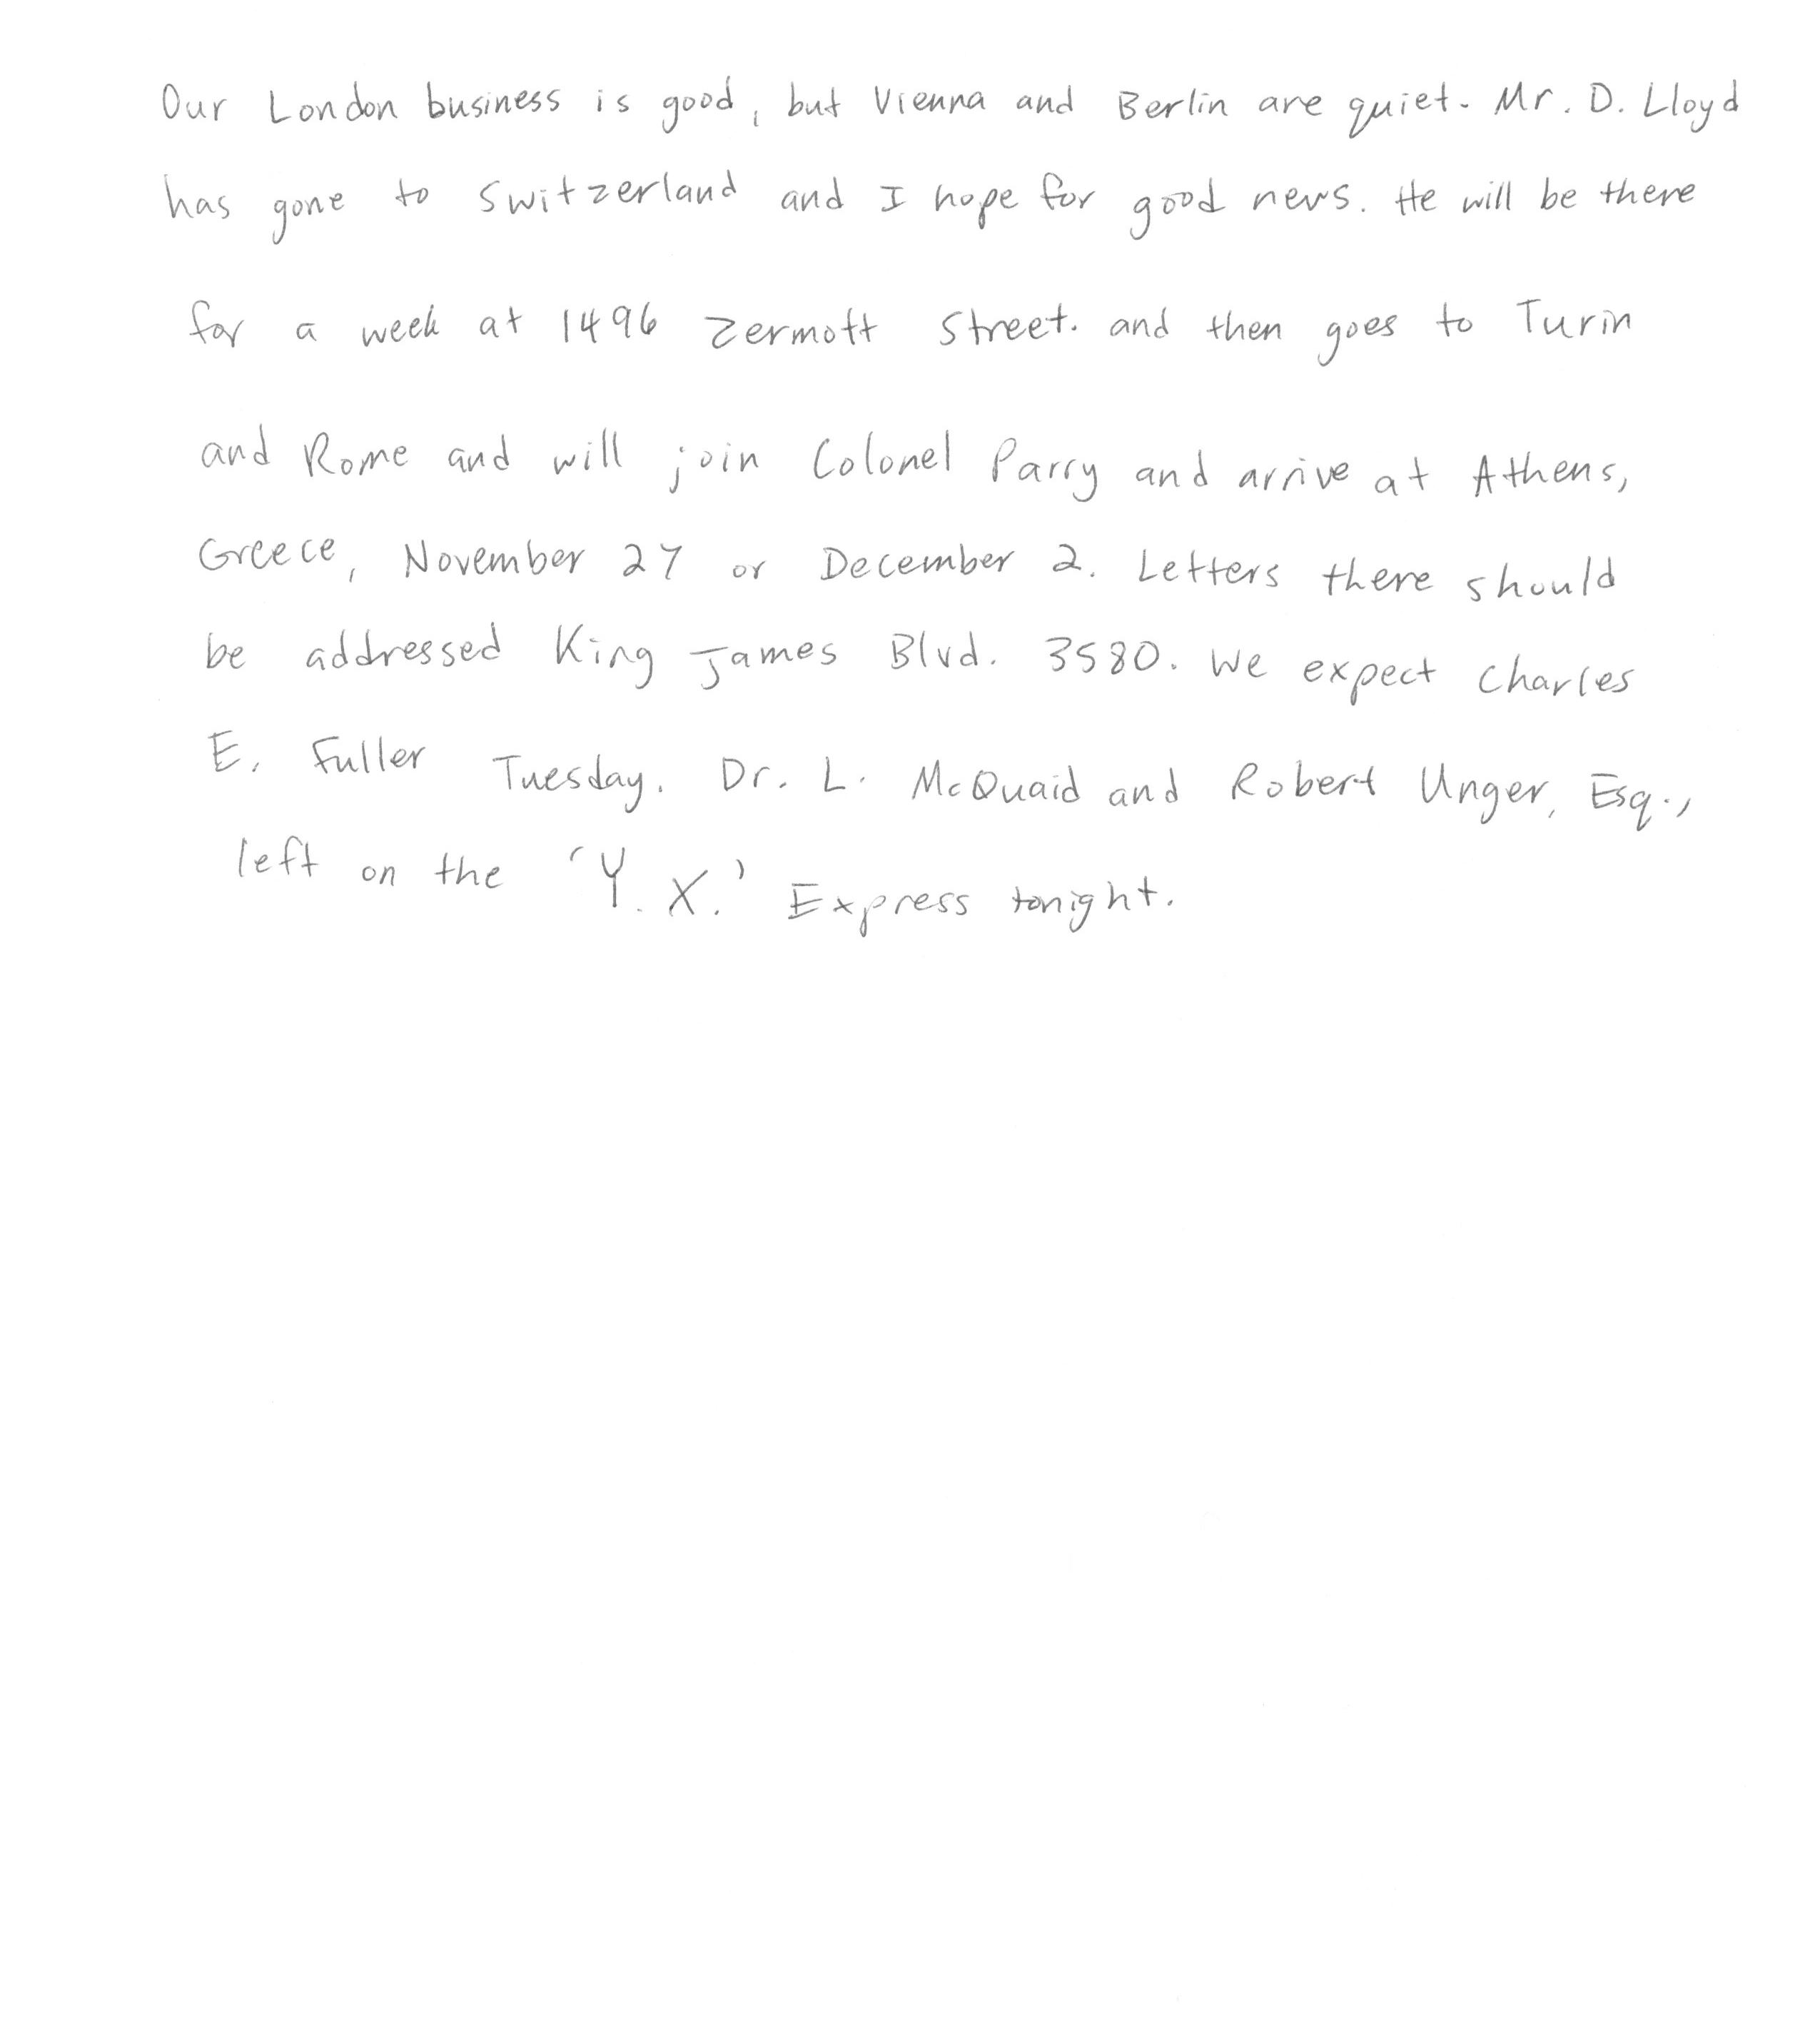 Our London business is good, but Vienna and Berlin are quiet. Mr. D. Lloyd
has gone to Switzerland and I hope for good news. He will be there
for a week at 1496 Zermott Street. and then goes to Turin
and Rome and will join Colonel Parry and arrive at Athens,
Greece, November 27 or December 2. Letters there should
be addressed King James Blvd. 3580. We expect Charles
E. Fuller Tuesday. Dr. L. McQuaid and Robert Unger, Esq.,
left on the 'Y.X.' Express tonight.